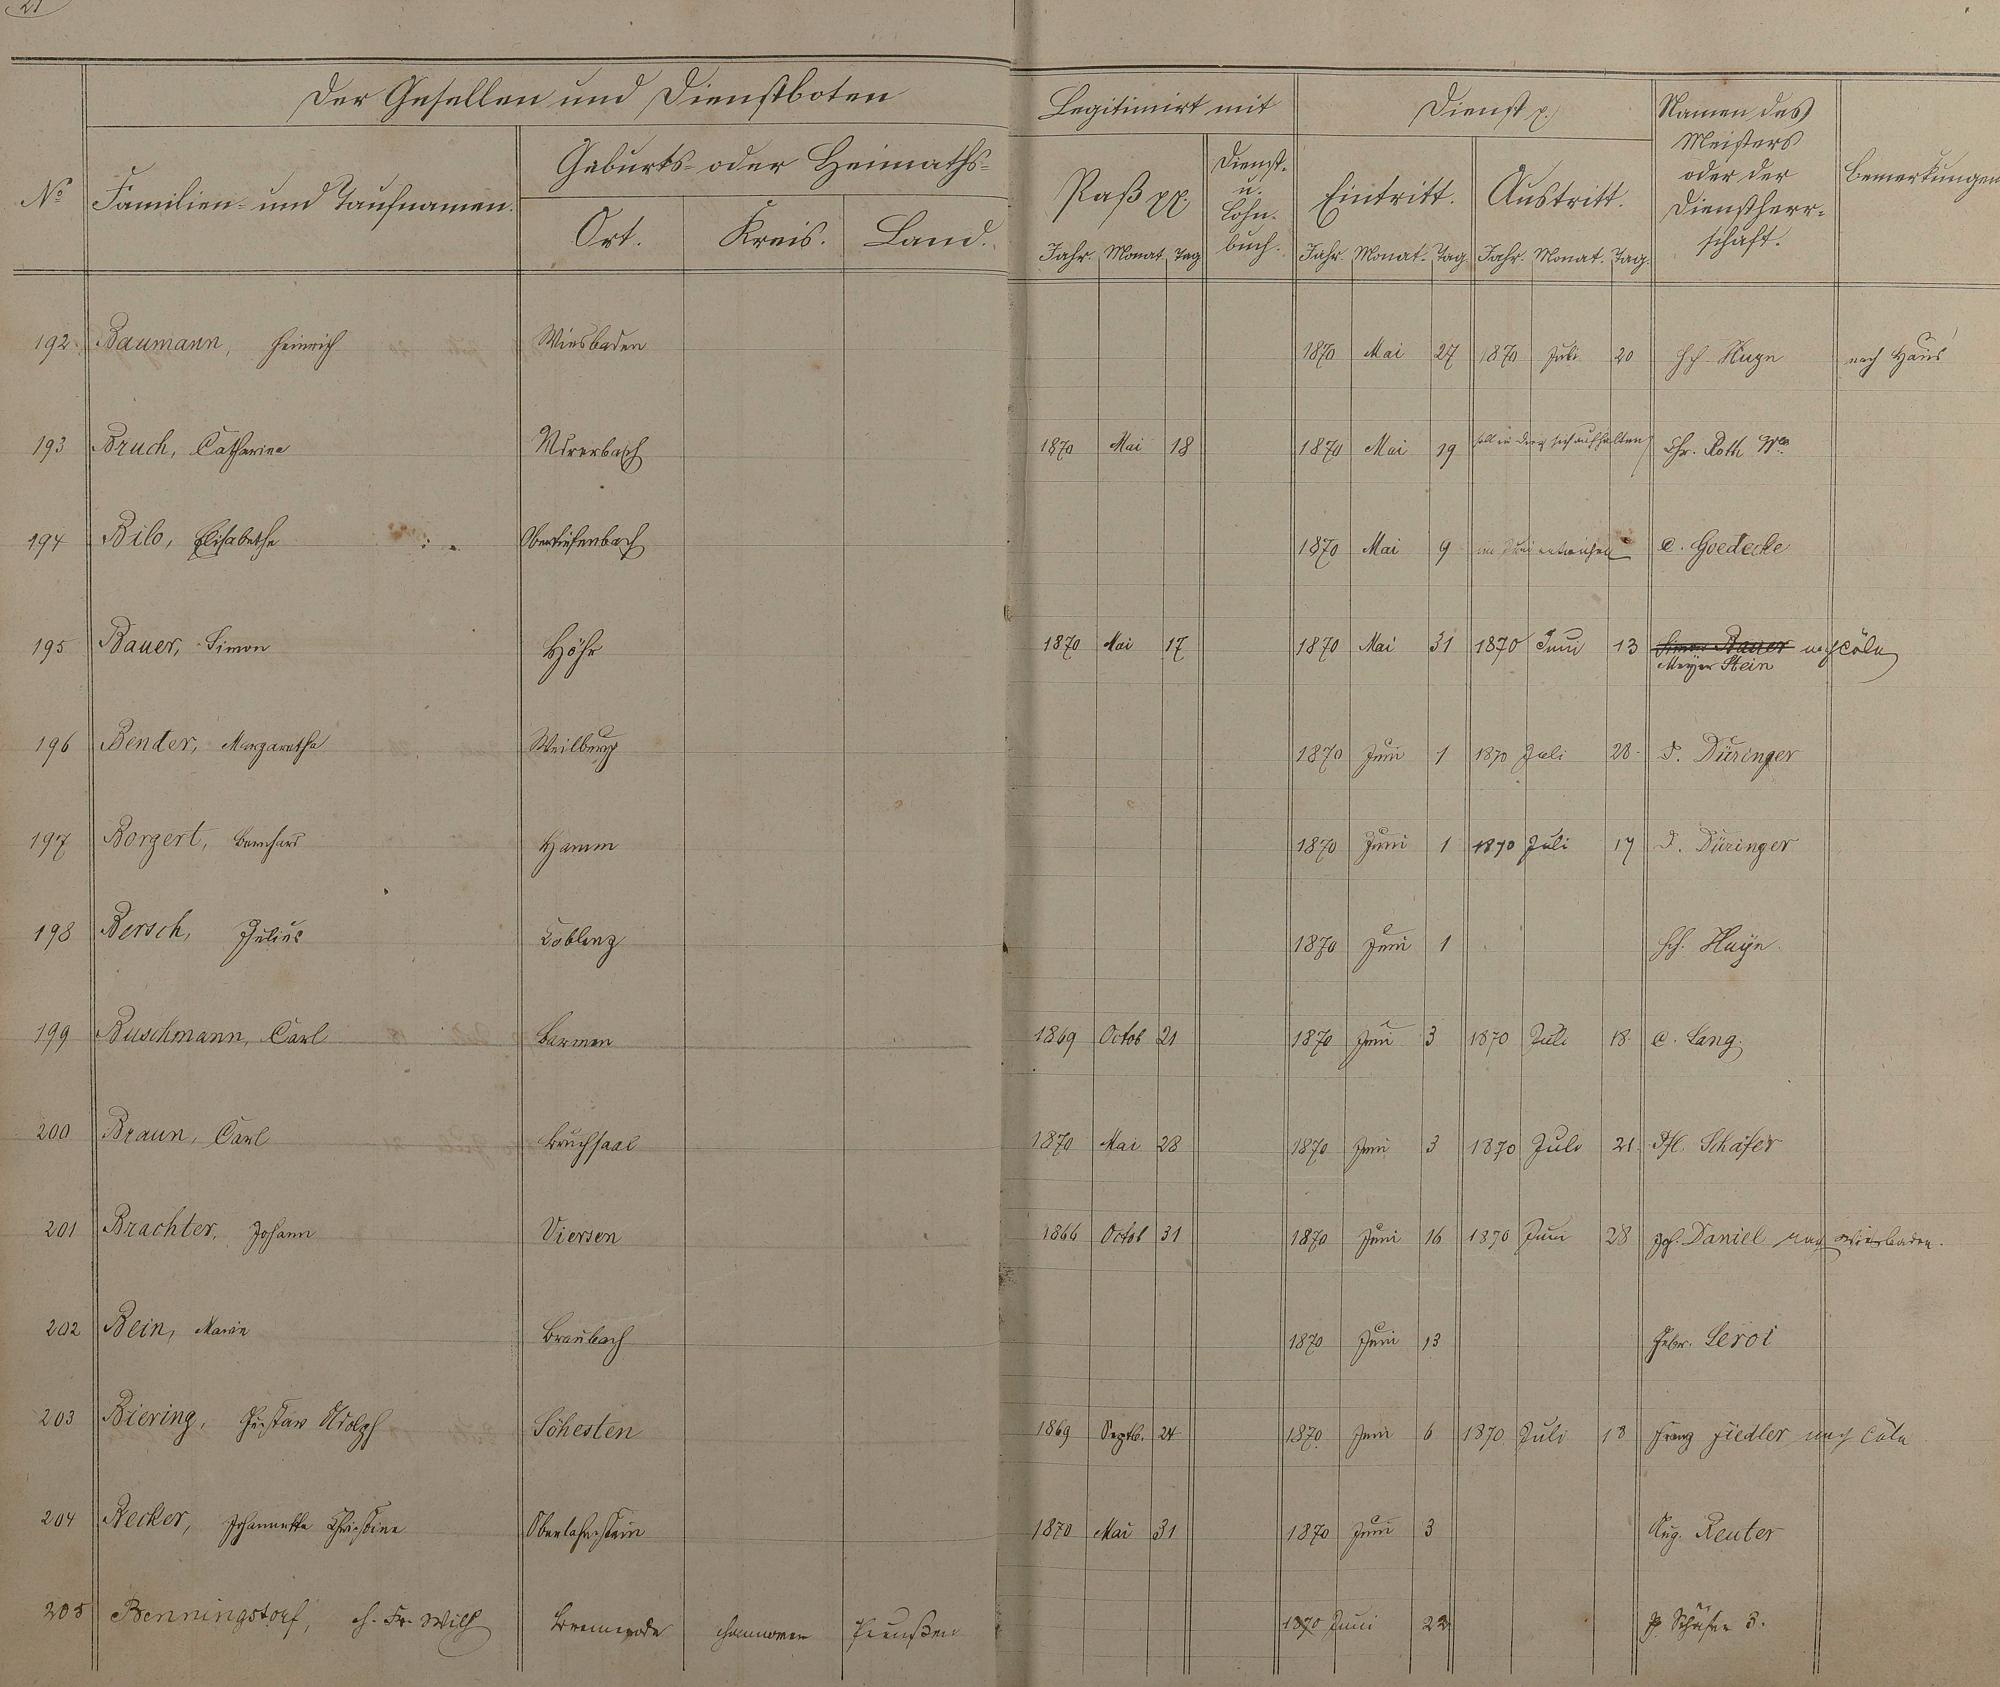 21
Der Gesellen und Dienstboten
Legitimirt mit
Dienst p.
Namen des Meisters oder der Dienstherrschaft.
Bemerkungen
No
Familien- und Taufnamen.
Geburts- oder Heimaths-
Ort. Kreis. Land.
Paß pp.
Dienst- u. Lohnbuch.
Eintritt. Austritt.
Jahr. Monat Tag Jahr. Monat. Tag. Jahr. Monat. Tag.
192 Baumann, Heinrich Wiesbaden 1870 Mai 27 1870 Juli 20 nach Haus
193 Bruch, Catharine 1870 Mai 18 1870 Mai 19 soll in sich aufhalten Chr. Roth Wwe
194 Bilo, Elisabethe Obertiefenbach 1870 Mai 9 im Juni entwichen C. Goedecke
195 Bauer, Simon Höhr 1870 Mai 17 1870 Mai 31 1870 Juni 13 Simon Bauer nach Cöln
Meyer Stein
196 Bender, Margarethe Weilburg 1870 Juni 1 1870 Juli 28 Düringer
197 Borgert, Bernhard Hamm 1870 Juni 1 1870 Juli 17 Düringer
198 Bersch, Julius Coblenz 1870 Juni 1
199 Buschmann, Carl Barmen 1869 Octob 21 1870 Juni 3 1870 Juli 18 C. Lang.
200 Braun, Carl Bruchsaal 1870 Mai 28 1870 Juni 3 1870 Juli 21 Schäfer
201 Brachter, Johann Viersen 1866 Octob 31 1870 Juni 16 1870 Juni 28 Jos. Daniel nach Wiesbaden.
202 Bein, Marie Braubach 1870 Juni 13 Gebr. Leroi
203 Biering, Gustav Adolph Söhesten 1869 Septb. 24 1870 Juni 6 1870 Juli 18 Franz Fiedler nach Cöln
204 Becker, Johannette Christine Oberlahnstein 1870 Mai 31 1870 Juni 3 Aug. Reuter
205 Benningstorf, H. Fr. Wilh Bremerode Hannover Preußen 1870 Juni 22 Schäfer 3.